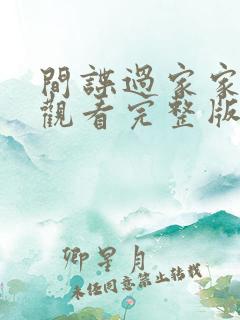 間諜過家家
觀看完整版
卿星月
未经同意禁止转载